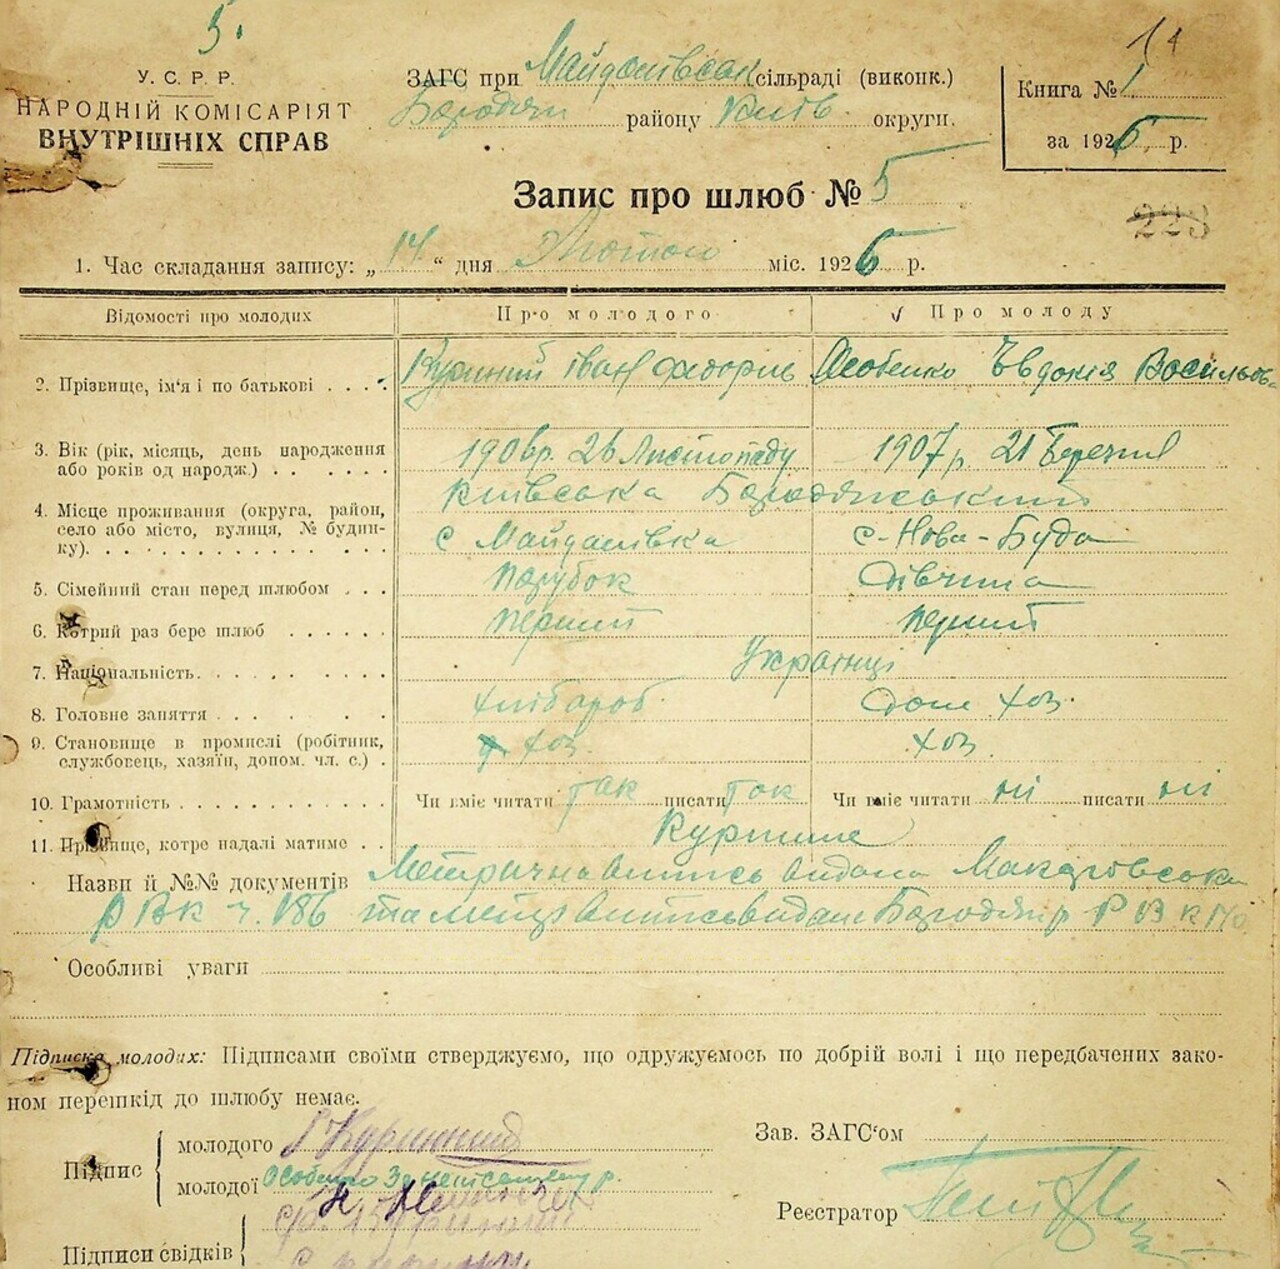 5.
У. С. Р. Р.
НАРОДНІЙ КОМІСАРІЯТ
ВНУТРІШНІХ СПРАВ
ЗАГС при Майданівськ сільраді (виконк.)
Бородян району Київ округи.
Книга № 1
за 1926 р.
Запис про шлюб № 5
223
1. Час складання запису: „14“ дня Лютого міс. 1926 р.
Відомості про молодих
Про молодого
Про молоду
2. Прізвище, ім'я і по батькові
Куринний Іван Федорів
Особенко Євдокія Васильов
3. Вік (рік, місяць, день народження або років од народж.)
1906р. 26 Листопаду
1907 р. 21 Березня
4. Місце проживання (округа, район, село або місто, вулиця, № будинку)
Київська Бородянський
с Майданівка
с-Нова-Буда
5. Сімейний стан перед шлюбом
парубок
дівчина
6. Котрий раз бере шлюб
перший
перший
7. Національність
Українці
8. Головне заняття
хлібороб.
Дом хоз.
9. Становище в промислі (робітник, службовець, хазяїн, допом. чл. с.)
хоз.
хоз.
10. Грамотність
Чи вміє читати так писати так
Чи вміє читати ні писати ні
11. Прізвище, котре надалі матиме
Куринне
Назви й №№ документів Метрична випись видана Макарівська
РВК ч. 186 та випись видан Бородян р РВК
Особливі уваги
Підписка молодих: Підписами своїми стверджуємо, що одружуємось по добрій волі і що передбачених зако-
ном перешкід до шлюбу немає.
Підпис
молодого І Куринний
молодої Особенко За неписьмену р.
Підписи свідків
Зав. ЗАГС'ом
Реєстратор